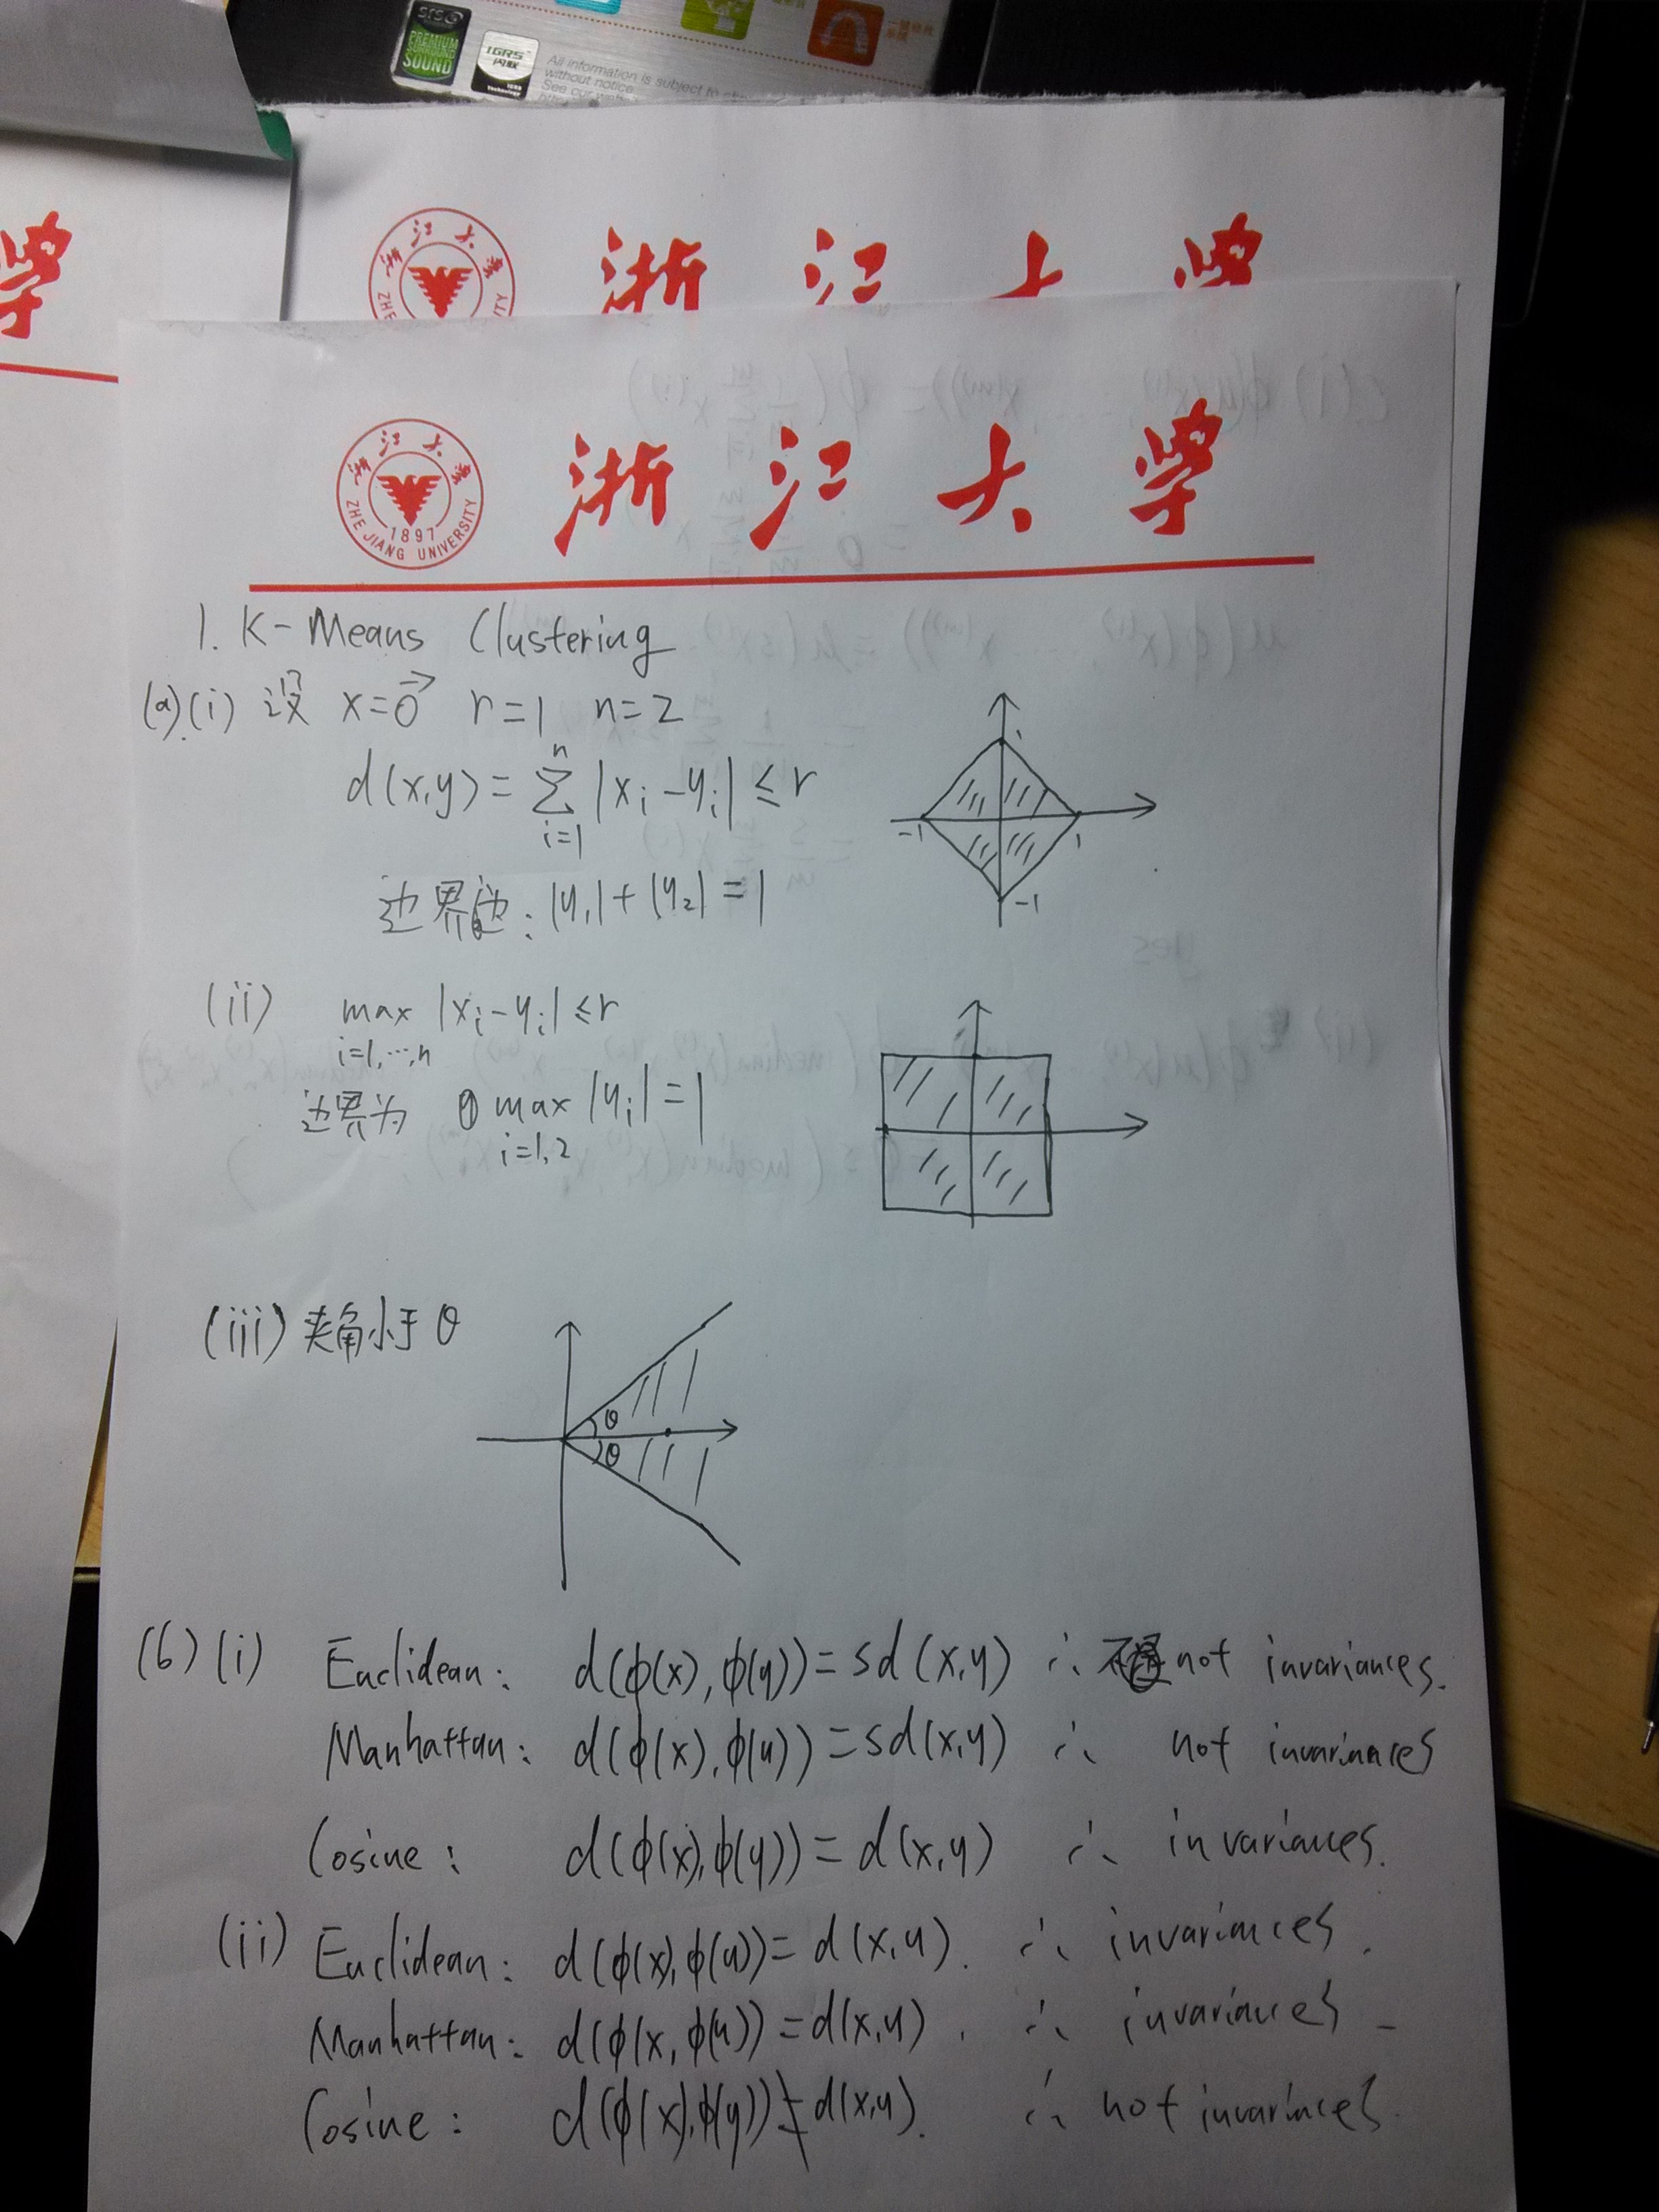 SRS
PREMIUM
SURROUND
SOUND
IGRS
闪联
Technology
All information is subject to
without notice
See our
学
浙江大
浙 江 大 学
浙江大学
ZHE JIANG UNIVERSITY
1897
浙 江 大 学
1. K-Means Clustering
(a).(i) 设 x=0⃗ r=1 n=2
d(x,y) = ∑_{i=1}^{n} |x_i - y_i| ≤ r
边界边: |y_1| + |y_2| = 1
1
-1 1
-1
(ii) max_{i=1,…,n} |x_i - y_i| ≤ r
边界为 max_{i=1,2} |y_i| = 1
(iii) 夹角小于 θ
θ
θ
(b) (i) Euclidean: d(ϕ(x), ϕ(y)) = sd(x,y) ∴ not invariances.
Manhattan: d(ϕ(x), ϕ(y)) = sd(x,y) ∴ not invariances
Cosine: d(ϕ(x), ϕ(y)) = d(x,y) ∴ invariances.
(ii) Euclidean: d(ϕ(x), ϕ(y)) = d(x,y). ∴ invariances.
Manhattan: d(ϕ(x, ϕ(y)) = d(x,y). ∴ invariances
Cosine: d(ϕ(x), ϕ(y)) ≠ d(x,y). ∴ not invariances.